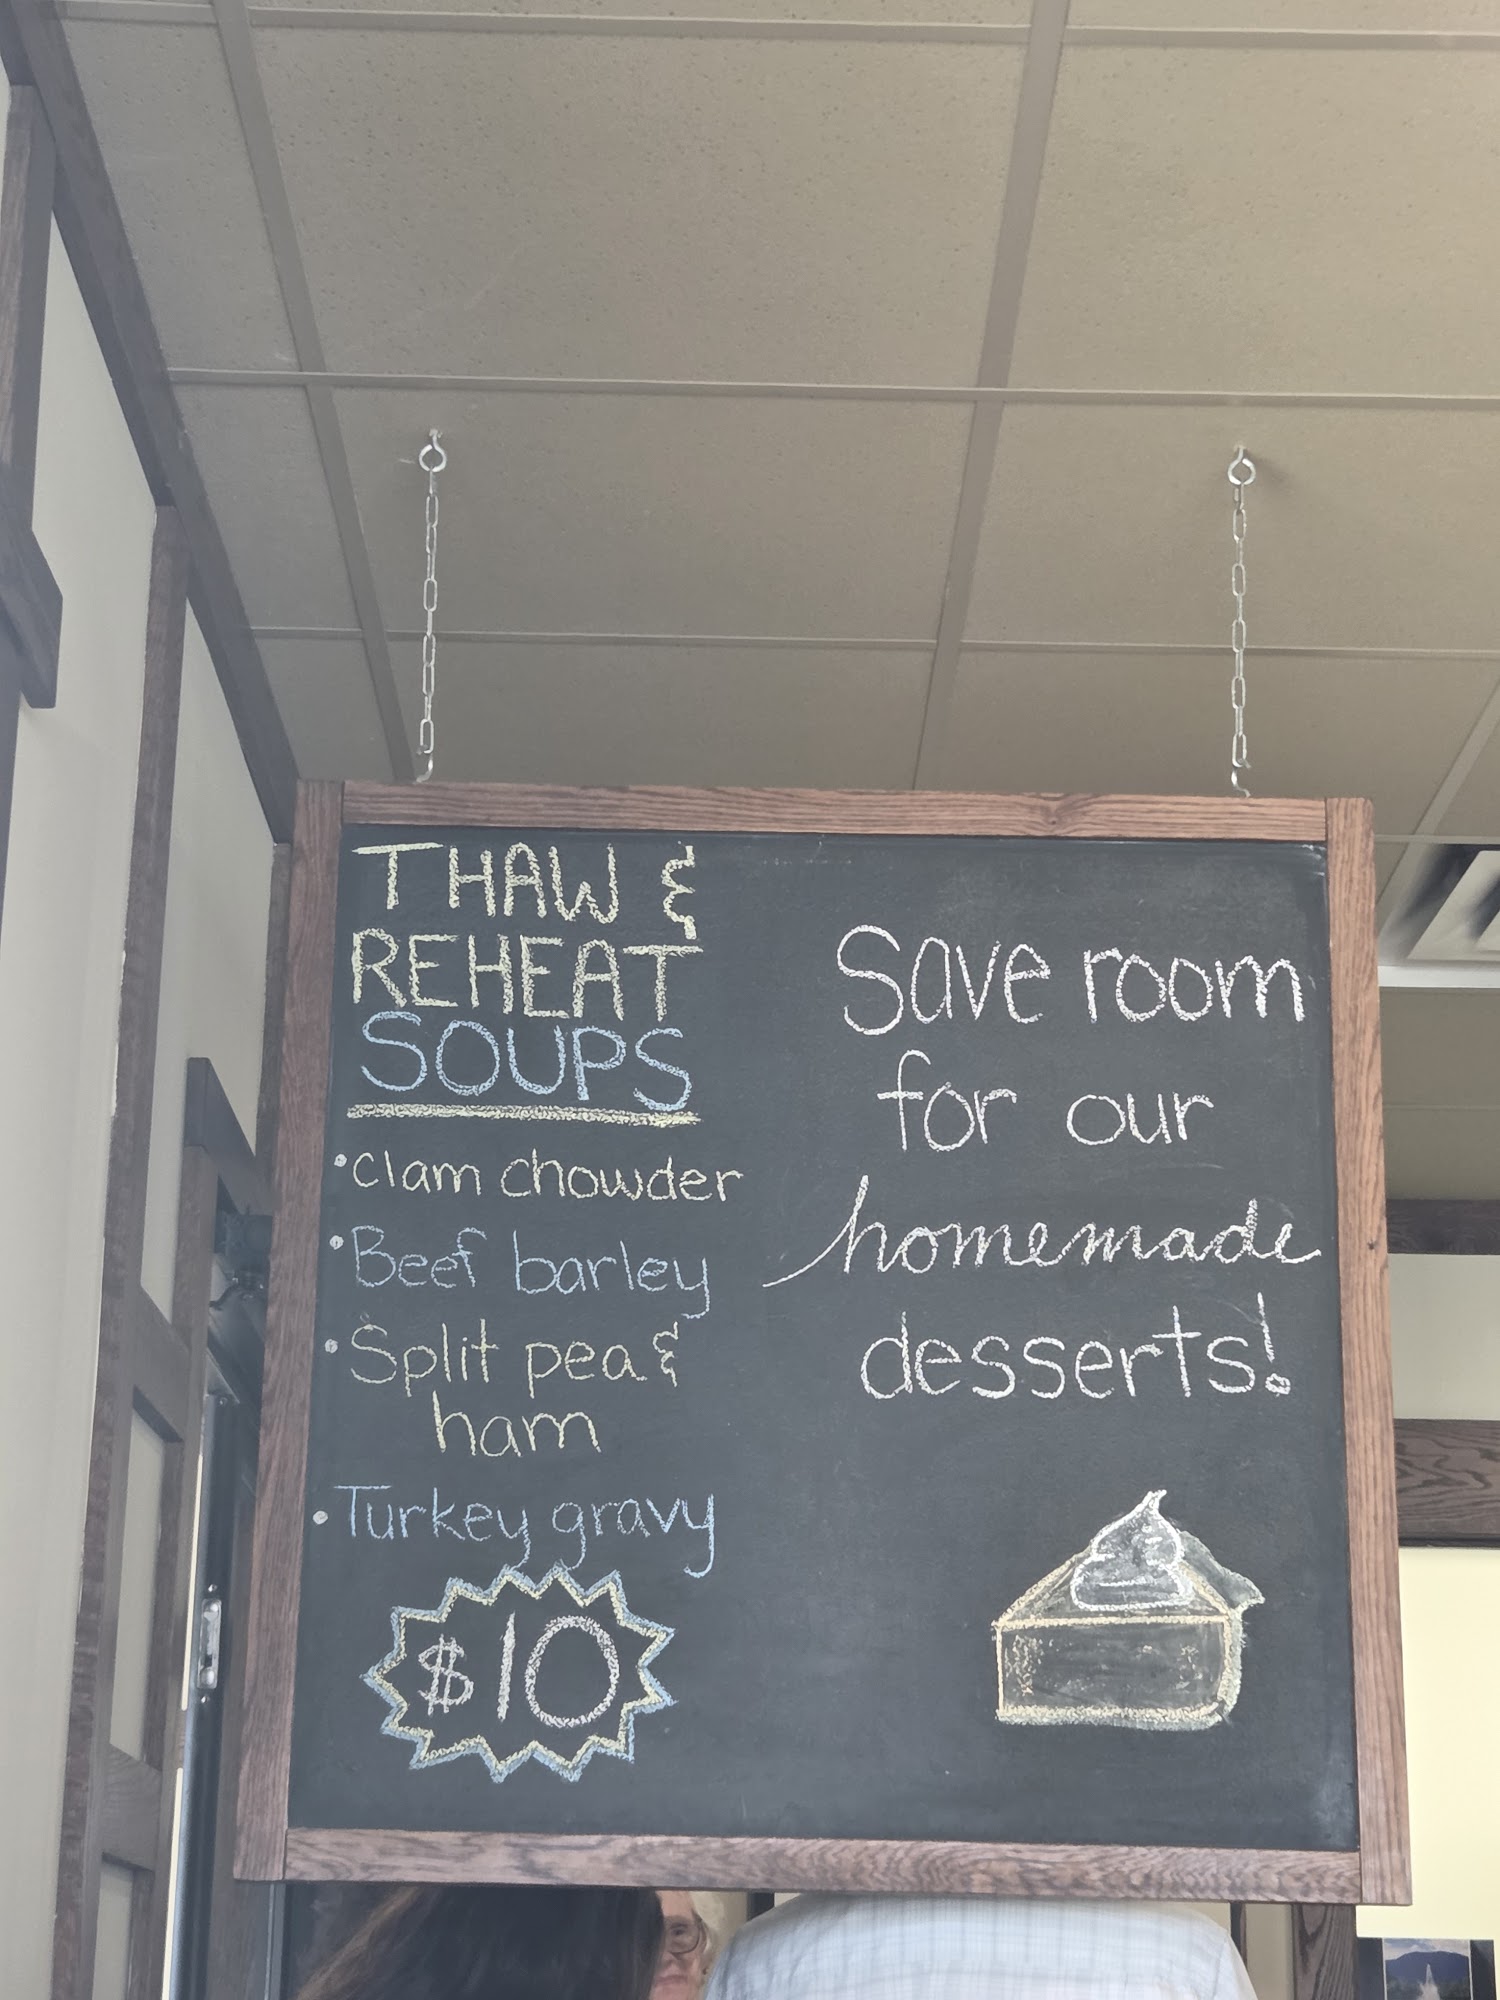 THAW &
REHEAT
SOUPS
• clam chowder
• Beef barley
• Split pea &
ham
• Turkey gravy
$10
Save room
for our
homemade
desserts!